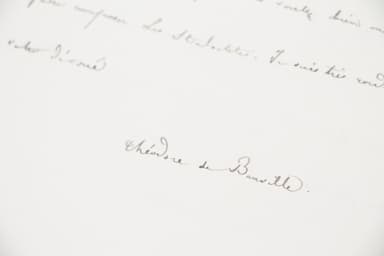 bien
pour composer les Stalactites. Je suis très
votre dévoué
Théodore de Banville.